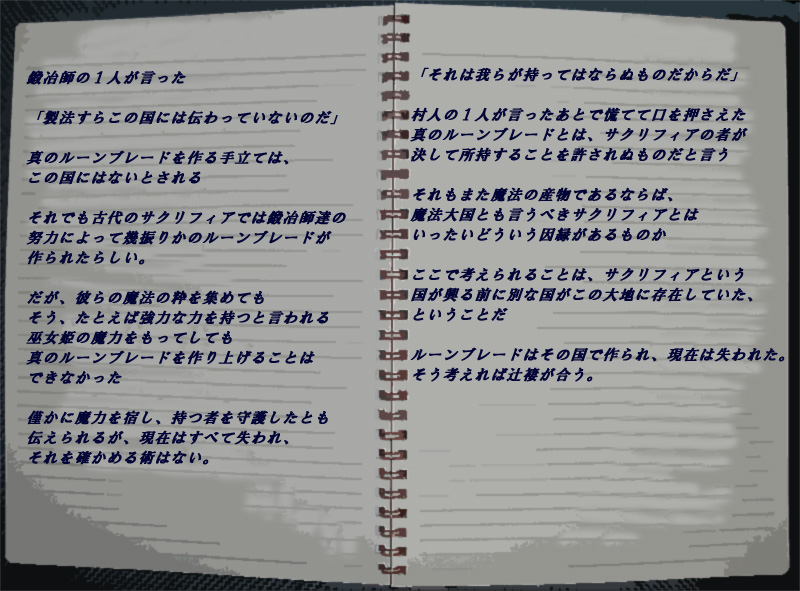 鍛冶師の１人が言った
「製法すらこの国には伝わっていないのだ」
真のルーンブレードを作る手立ては、
この国にはないとされる
それでも古代のサクリフィアでは鍛冶師達の
努力によって幾振りかのルーンブレードが
作られたらしい。
だが、彼らの魔法の粋を集めても
そう、たとえば強力な力を持つと言われる
巫女姫の魔力をもってしても
真のルーンブレードを作り上げることは
できなかった
僅かに魔力を宿し、持つ者を守護したとも
伝えられるが、現在はすべて失われ、
それを確かめる術はない。
「それは我らが持ってはならぬものだからだ」
村人の１人が言ったあとで慌てて口を押さえた
真のルーンブレードとは、サクリフィアの者が
決して所持することを許されぬものだと言う
それもまた魔法の産物であるならば、
魔法大国とも言うべきサクリフィアとは
いったいどういう因縁があるものか
ここで考えられることは、サクリフィアという
国が興る前に別な国がこの大地に存在していた、
ということだ
ルーンブレードはその国で作られ、現在は失われた。
そう考えれば辻褄が合う。